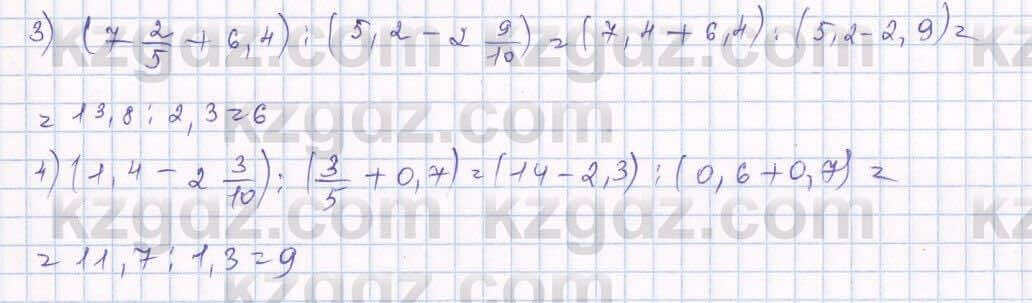 3) (7 2/5 + 6,4) : (5,2 - 2 9/10) = (7,4 + 6,4) : (5,2 - 2,9) =
= 13,8 : 2,3 = 6
4) (1,4 - 2 3/10) : (3/5 + 0,7) = (14 - 2,3) : (0,6 + 0,7) =
= 11,7 : 1,3 = 9
kzgdz.com